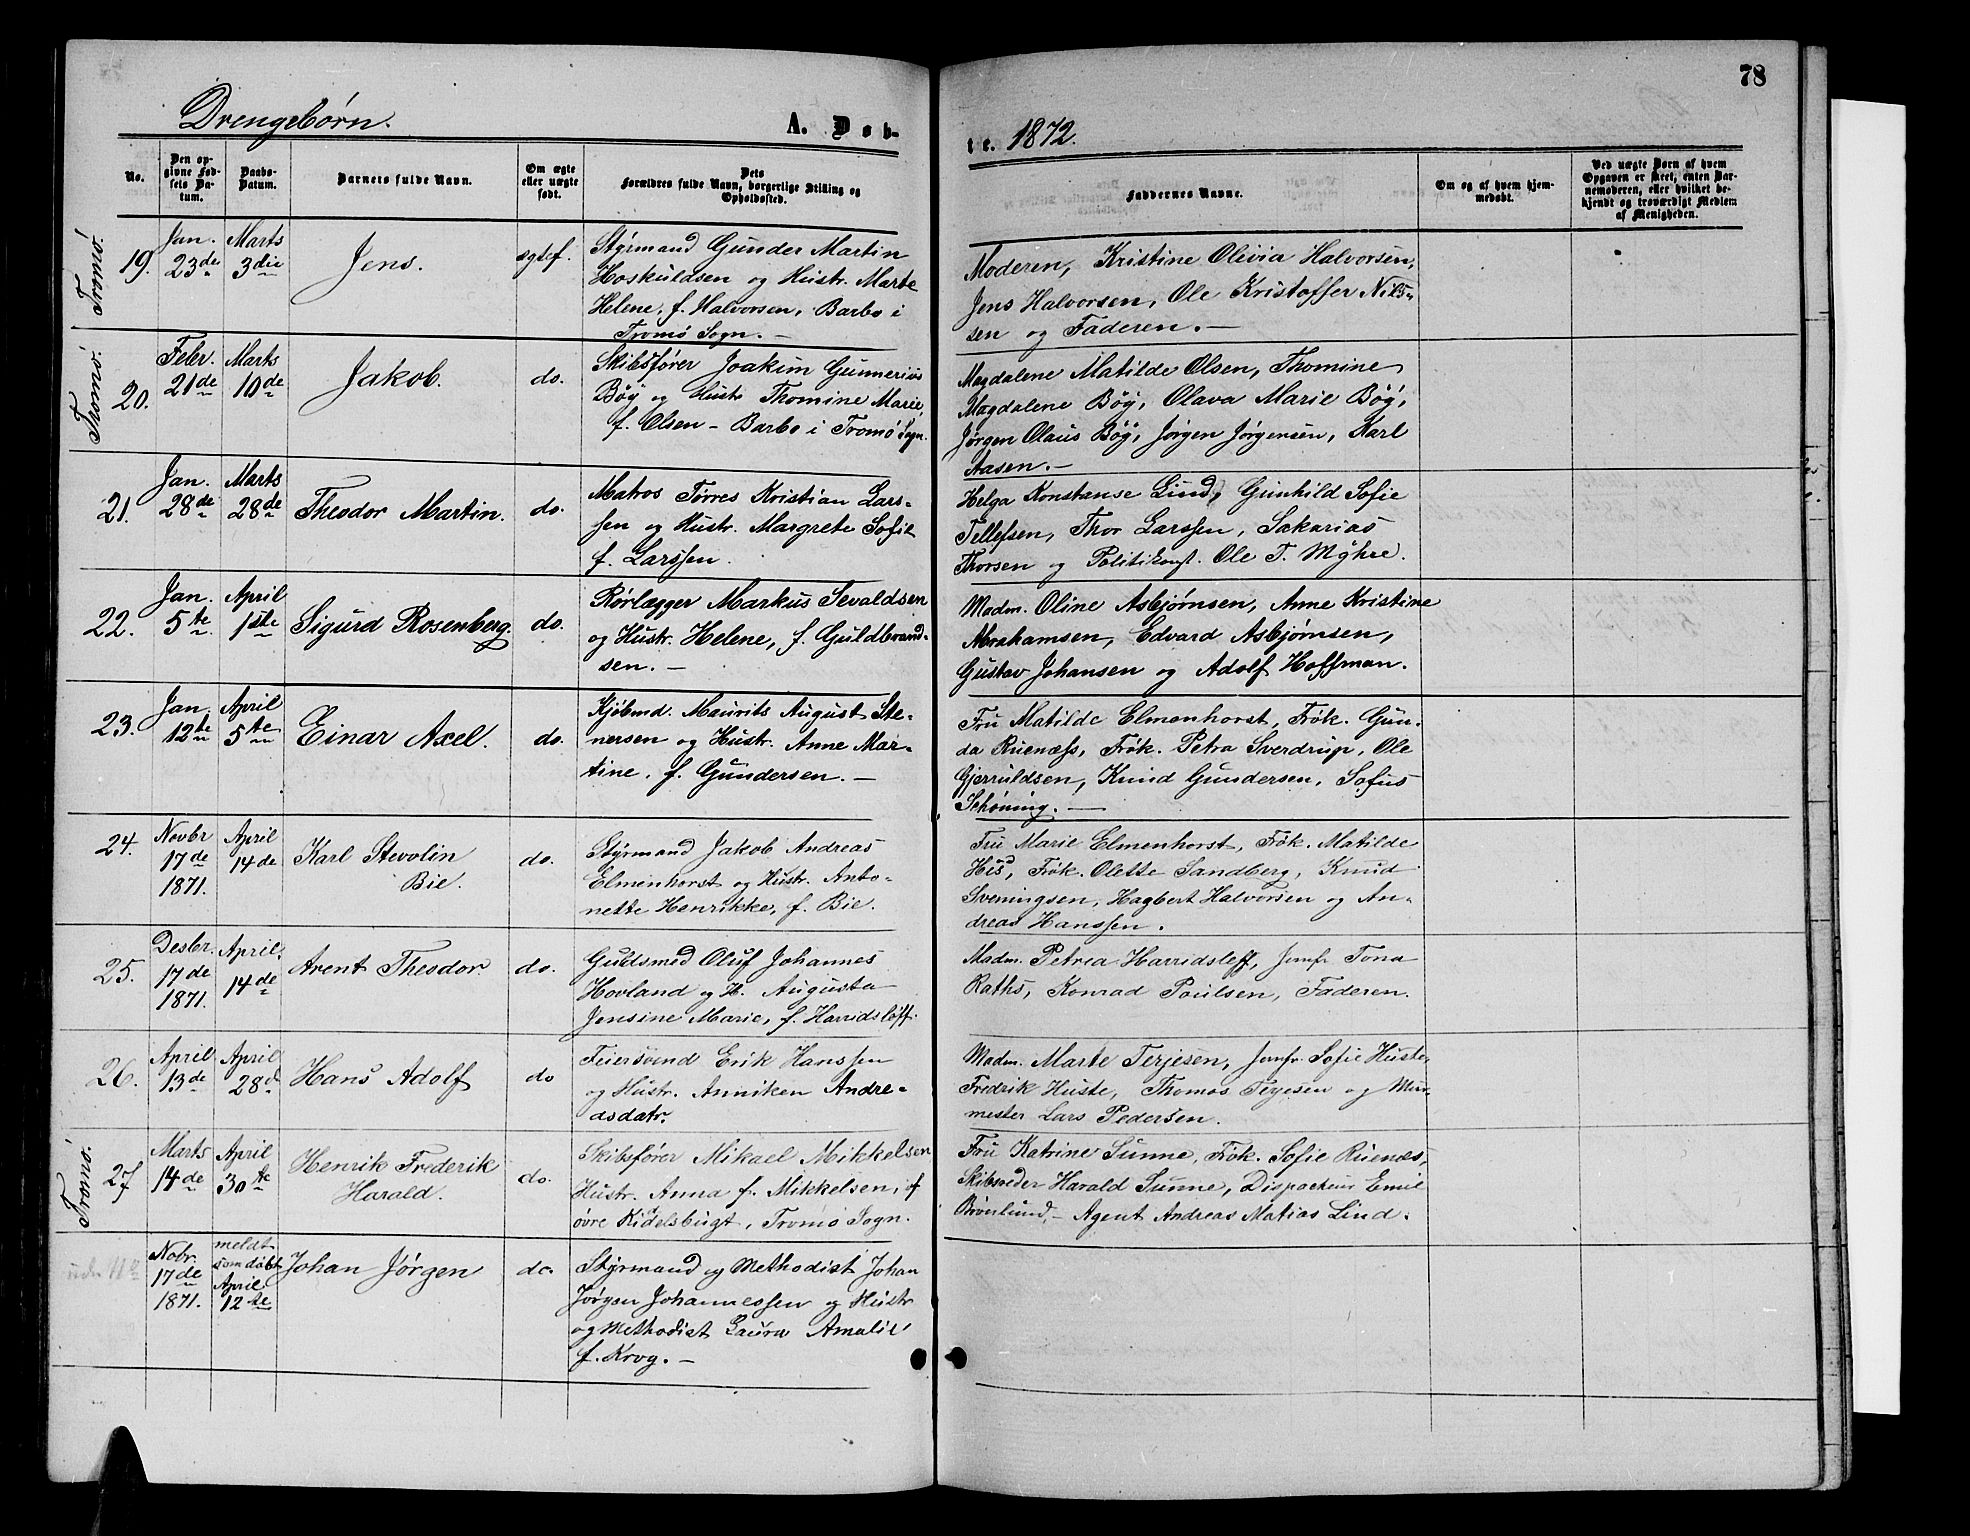 78
Drengebørn.
A. Døb-
te. 1872.
No.
Den op-
givne Fød-
sels Da-
tum.
Daabs-
Datum.
Barnets fulde Navn.
Om ægte
eller uægte
født.
Dets
Forældres fulde Navn, borgerlige Stilling og
Opholdssted.
Faddernes Navne.
Om og af hvem hjem-
medøbt.
Ved uægte Børn af hvem
Opgaven er skeet, enten Bar-
nemoderen, eller hvilket be-
kjendt og troværdigt Medlem
af Menigheden.
Tromø.
19.
Jan.
23de
Marts
3die
Jens.
egtef.
Styrmand Gunder Martin
Hoskuldsen og Hustr. Marte
Helene, f. Halvorsen, Barbo i
Tromø Sogn. —
Moderen, Kristine Olivia Halvorsen,
Jens Halvorsen, Ole Kristoffer Nils-
sen og Faderen. —
Tromø.
20.
Febr.
21de
Marts
10de
Jakob.
do.
Skibsfører Joakim Gunnerius
Bøy og Hustr Thomine Marie,
f. Olsen - Barbo i Tromø Sogn.
Magdalene Matilde Olsen, Thomine
Magdalene Bøy, Olava Marie Bøy,
Jørgen Olaus Bøy, Jørgen Jørgensen, Karl
Aasen. —
21.
Jan.
28de
Marts
28de
Theodor Martin.
do.
Matros Tørres Kristian Lars-
sen og Hustr. Margrete Sofie
f. Larssen.
Helga Konstanse Lind, Gunhild Sofie
Tellefsen, Thor Larssen, Sakarias
Thorsen og Politikonst. Ole T. Myhre.
22.
Jan.
5te
April
1ste
Sigurd Rosenberg.
do.
Rørlægger Markus Sevaldsen
og Hustr. Helene, f. Guldbrand-
sen. —
Madm. Oline Asbjørnsen, Anne Kristine
Abrahamsen, Edvard Asbjørnsen,
Gustav Johansen og Adolf Hoffman.
23.
Jan.
12te
April
5te
Einar Axel.
do.
Kjøbmd. Maurits August Ste-
nersen og Hustr. Anne Mar-
tine, f. Gundersen. —
Fru Matilde Elmenhorst, Frøk. Gun-
da Ruenæss, Frøk. Petra Sverdrup, Ole
Gjeruldsen, Knud Gundersen, Sofus
Schøning. —
24.
Novbr
17de
1871.
April
14de
Karl Stevolin
Bie.
do.
Styrmand Jakob Andreas
Elmenhorst og Hustr. Anto-
nette Henrikke, f. Bie.
Fru Marie Elmenhorst, Frøk. Matilde
His, Frøk. Olette Sandberg, Knud
Sveningsen, Hagbert Halvorsen og An-
dreas Hanssen.
25.
Desbr.
17de
1871.
April
14de
Arent Theodor
do.
Guldsmed Oluf Johannes
Hovland og H. Augusta
Jensine Marie, f. Harridsleff.
Madm. Petrea Harridsleff, Jomfr Tona
Raths, Konrad Poulsen, Faderen.
26.
April
13de
April
28d
Hans Adolf
do
Feiersvend Erik Hanssen
og Hustr. Anniken Andre-
asdatr.
Madm. Marte Terjesen, Jomfr. Sofie Huste,
Fredrik Huste, Thomas Terjesen og Mur-
mester Lars Pedersen.
Tromø.
27.
Marts
14de
April
30te
Henrik Frederik
Harald.
do.
Skibsfører Mikael Mikkelsen
Hustr. Anna f. Mikkelsen, af
øvre Kidelsbugt, Tromø Sogn.
Fru Katrine Sunne, Frøk. Sofie Ruenæs,
Skibsreder Harald Sunne, Dispacheur Emil
Brønlund, - Agent Andreas Matias Lind.
Nobr.
17de
1871.
meldt
som døbt
April
12te
Johan Jørgen
do.
Styrmand og Methodist Johan
Jørgen Johannessen og Hustr
og Methodist Laura Amalie
f. Krog. —